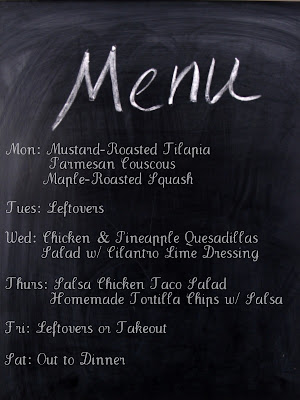 Menu
Mon: Mustard-Roasted Tilapia
Parmesan Couscous
Maple-Roasted Squash
Tues: Leftovers
Wed: Chicken & Pineapple Quesadillas
Salad w/ Cilantro Lime Dressing
Thurs: Salsa Chicken Taco Salad
Homemade Tortilla Chips w/ Salsa
Fri: Leftovers or Takeout
Sat: Out to Dinner